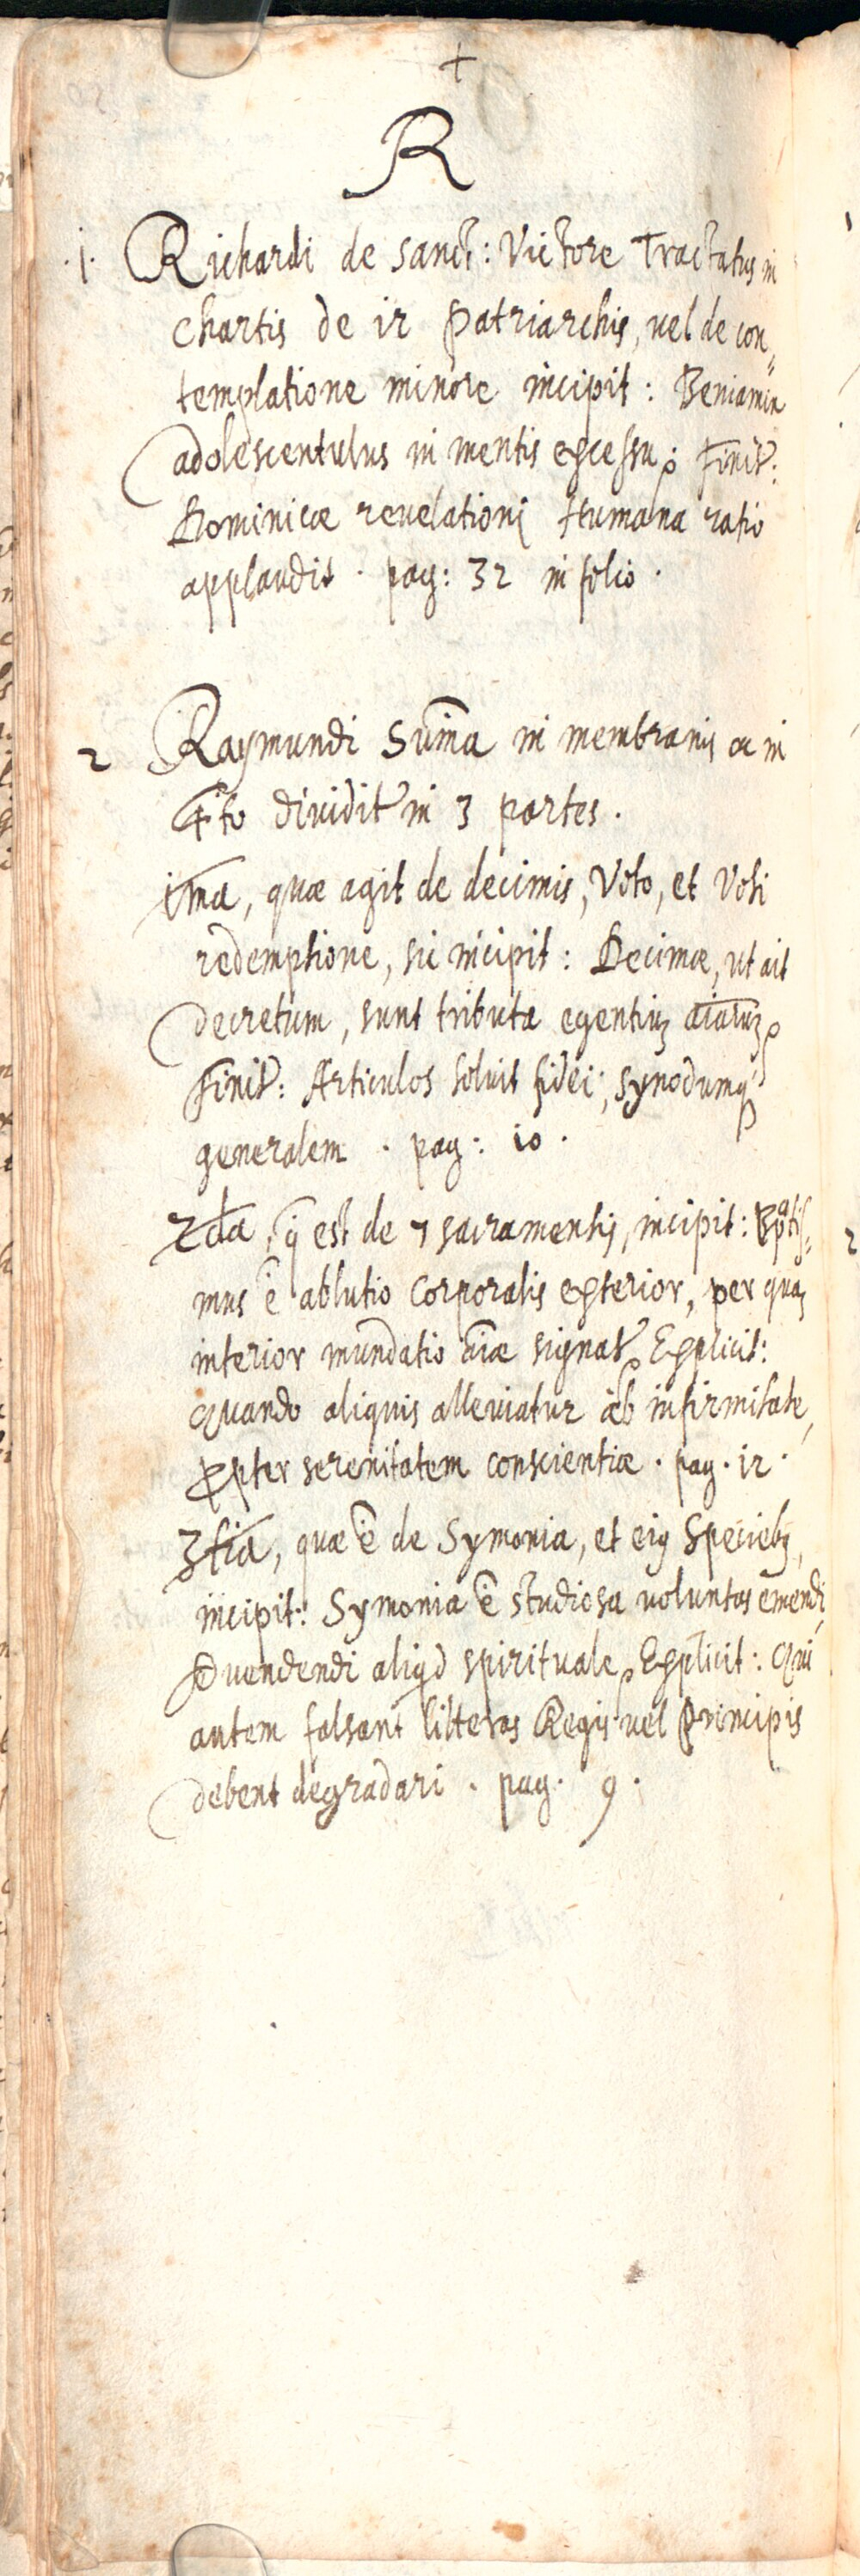 +
R
.i. Richardi de sanct: Victore Tractatus in
chartis de i2 Patriarchis, uel de con„
templatione minore incipit: Beniamin
adolescentulus in mentis excessu: Finit:
Dominicæ reuelationi Humana ratio
applaudit. pag: 32 in folio.
2 Raymundi Suma in membranis ac in
4to diuidit in 3 partes.
ima, quæ agit de decimis, Voto, et Voti
redemptione, sic incipit: Decimæ, ut ait
decretum, sunt tributa egentiuȝ aiaruȝ
Finit: Articulos soluit fidei, synodumq
generalem. pag: io.
2da, q̄ est de 7 sacramentis, incipit: Bptis=
mus ē ablutio corporalis exterior, per quaȝ
interior mundatio aiæ signat. Explicit:
Quando aliquis alleuiatur ab infirmitate,
ꝓpter serenitatem conscientiæ. pag. i2.
3tia, quæ ē de Symonia, et eiꝰ specieb9,
incipit: Symonia ē studiosa uoluntas emendi,
uendendi aliqd spirituale, Explicit: Qui
autem falsant litteras Regis uel Principis
debent degradari. pag. 9.